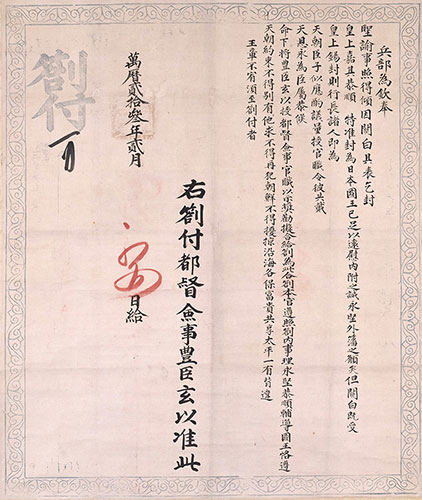 兵部為欽奉
聖諭事照得頃因關白具表乞封
皇上嘉其恭順特准封為日本國王已足以遠慰內附之誠永堅外藩之願矣但關白既受
皇上錫封則行長諸人即為
天朝臣子似應酌議量授官職令彼共戴
天恩永為臣屬恭候
命下將豊臣玄以授都督僉事官職以示奬勸擬合給劄為此合劄本官遵照劄內事理永堅恭順輔導國王恪遵
天朝約束不得別有他求不得再犯朝鮮不得擾掠沿海各保富貴共享太平一有背違
王章不宥須至劄付者
右劄付都督僉事豊臣玄以准此
萬曆貳拾叁年貳月
日給
劄付